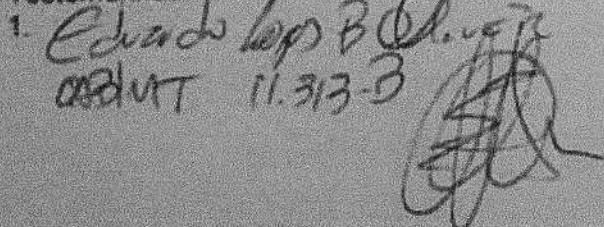 1. Eduardo Lopes B Oliveira
OAB/MT 11.313-B